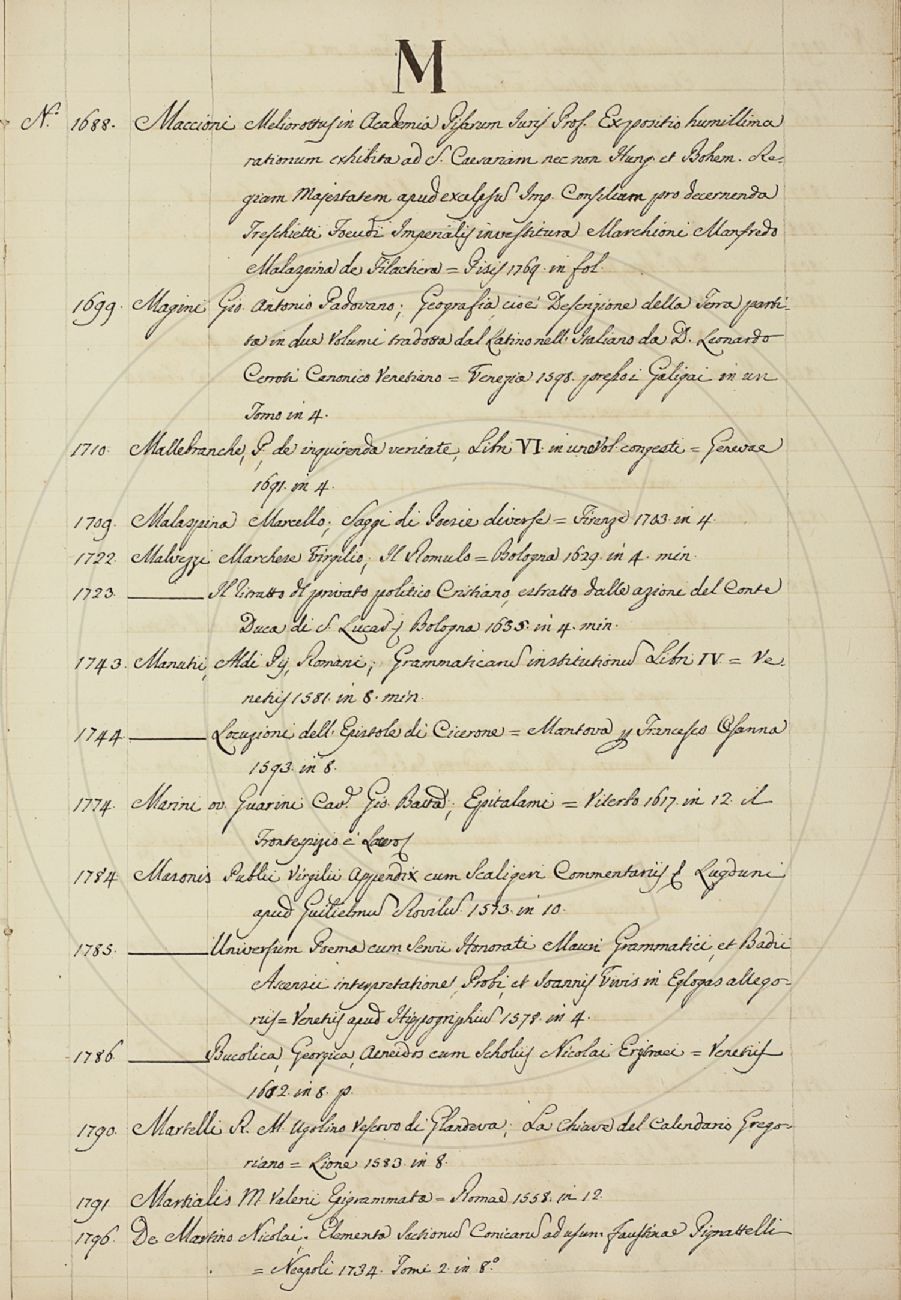 M
N.° 1688. Maccioni Meliorottus in Academia Pisarum Juris Prof. Expositio humillima
rationum exhibita ad S. Caesariam nec non Hung. et Bohem. Re=
giam Majestatem apud excelsum Imp. Consilium pro decernenda
Treschietti Foeudi Imperialis investitura Marchioni Manfredo
Malaspina de Filachera = Pisis 1769. in fol.
1699. Magini Gio. Antonio Padovano; Geografia, cioè Descrizione della Terra parti=
ta in due Volumi tradotta dal Latino nell' Italiano da D. Leonardo
Cernoti Canonico Venetiano = Venezia 1598. presso i Galigai in un
Tomo in 4.
1710. Mallebranche, P, de inquirenda veritate, Libri VI. in uno Vol. congesti = Genevae
1691. in 4.
1709. Malaspina Marcello; Saggi di Poesie diverse = Firenze 1703. in 4.
1722. Malvezzi Marchese Virgilio; Il Romulo = Bologna 1629. in 4. min.
1723. ——— Il Ritratto del privato politico Cristiano, estratto dalle azioni del Conte
Duca di S. Lucar; Bologna 1635. in 4. min.
1743. Manutii, Aldi Pij, Romani; Grammaticarum institutionum Libri IV = Ve=
netiis 1581. in 8. min.
1744. ——— Locuzioni dell' Epistole di Cicerone = Mantova per Francesco Osanna
1593. in 8.
1774. Marini ov. Guarini Cav.e Gio. Batta; Epitalami = Viterbo 1617. in 12. il
Frontespizio è
1784. Maronis Publii Virgilii Appendix cum Scaligeri Commentariis Lugduni
apud Guilielmum Rovilium 1573. in 10.
1785. ——— Universum Poema cum Servii Honorati Mauri Grammatici, et Badii
Ascensii interpretatione, Probi, et Joannis Vivis in Eglogas allego=
riis = Venetiis apud 1578. in 4.
1786. ——— Bucolica, Georgica, Aeneidos cum Scholiis Nicolai Erytraei = Venetiis
1682. in 8. p.
1790. Martelli R. M. Ugolino Vescovo di Glandeva; La Chiave del Calendario Grego=
riano = Lione 1583. in 8.
1791. Martialis M. Valerii Epigrammata = Romae 1558. in 12.
1796. De Martino Nicolai; Elementa Sectionum Conicarum ad usum Faustinae Pignattelli
= Neapoli 1734. Tomi 2. in 8.°